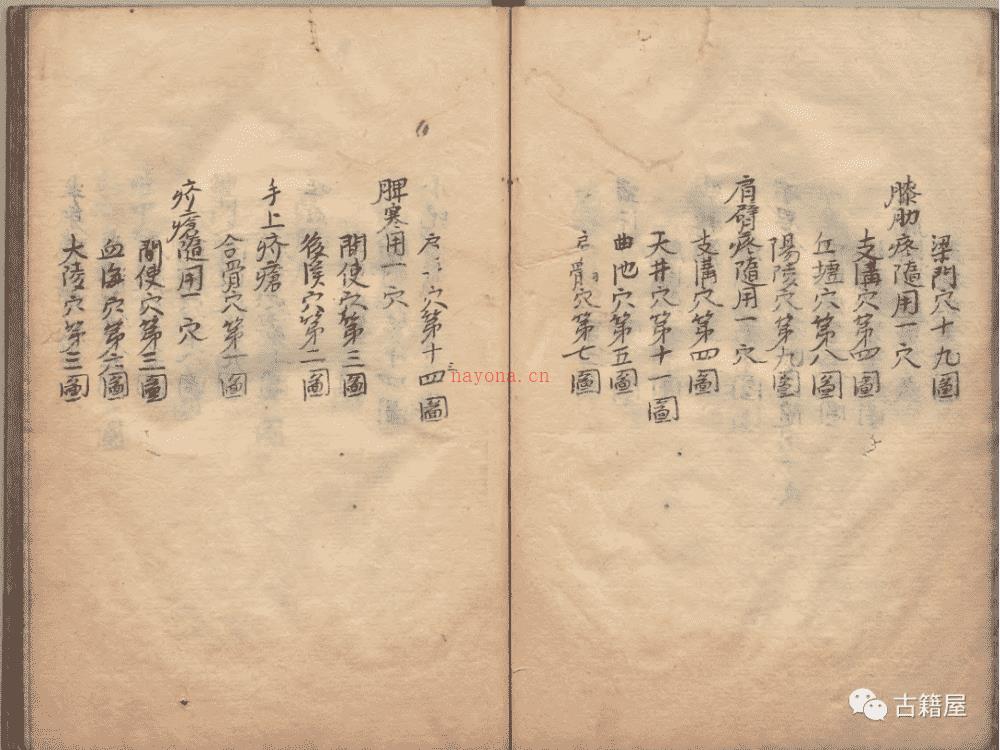 梁門穴十九圖
膝肋疼隨用一穴
支溝穴第四圖
丘墟穴第八圖
陽陵穴第九圖
肩臂疼隨用一穴
支溝穴第四圖
天井穴第十一圖
曲池穴第五圖
肩骨穴第七圖
穴第十四圖
脾寒用一穴
間使穴第三圖
後溪穴第二圖
手上疥瘡
合骨穴第一圖
疥瘡隨用一穴
間使穴第三圖
血海穴第六圖
大陵穴第三圖
hayona.cn
古籍屋